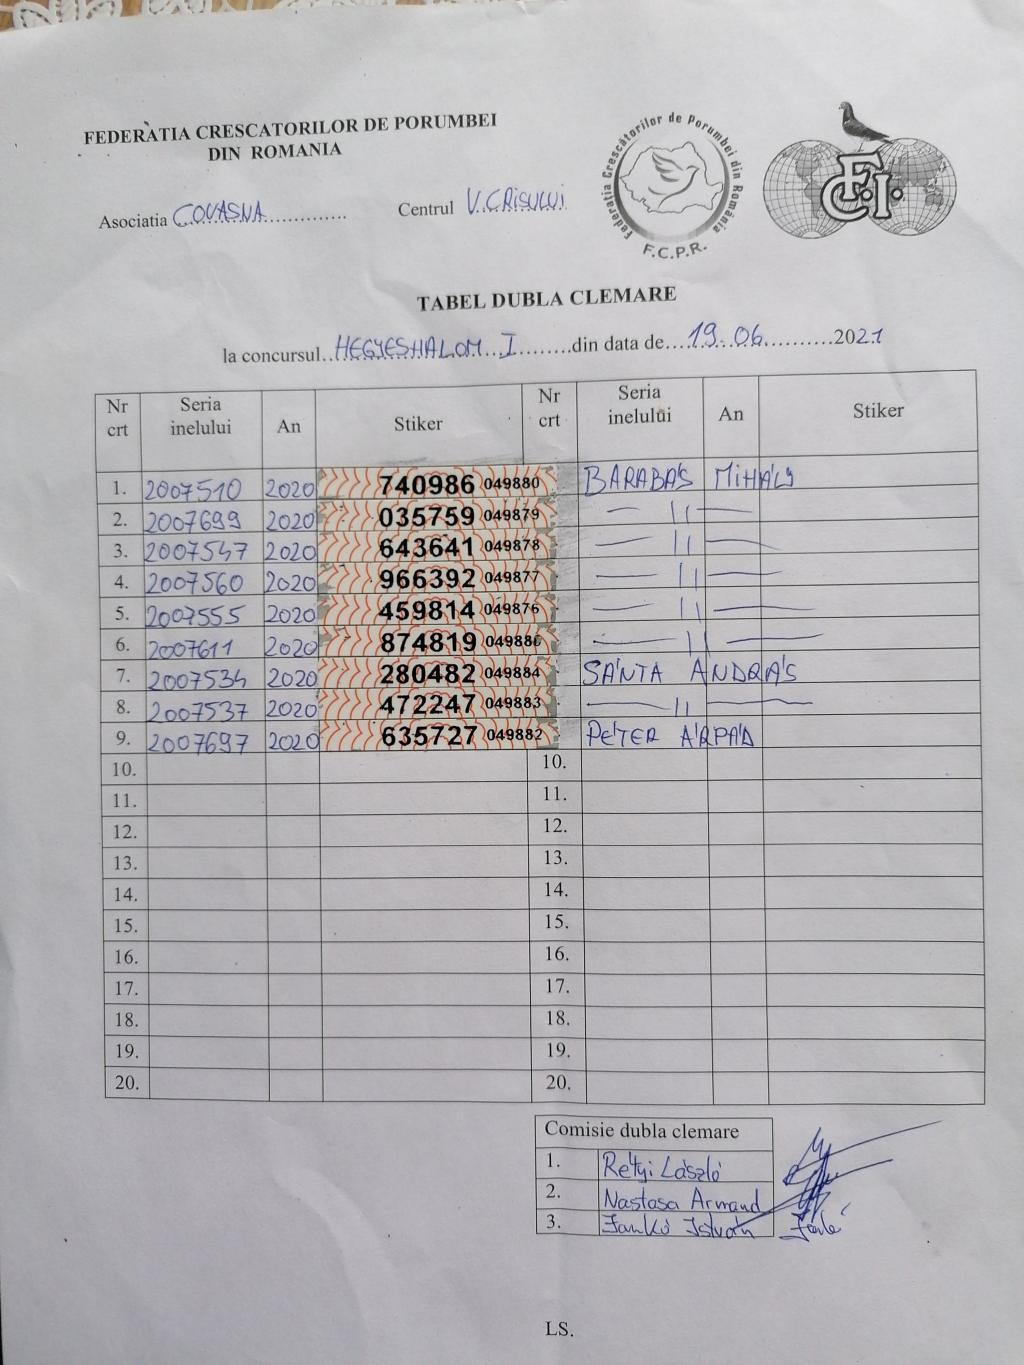 FEDERATIA CRESCATORILOR DE PORUMBEI
DIN ROMANIA
Asociatia COVASNA.............
Centrul V.CRISULUI
Federatia Crescătorilor de Porumbei din România
F.C.P.R.
F.C.I.
TABEL DUBLA CLEMARE
la concursul..HEGYESHALOM I........din data de....19.06...........2021
Nr crt Seria inelului An Stiker Nr crt Seria inelului An Stiker
1. 2007510 2020 740986 049880 BARABÁS MIHÁLY
2. 2007699 2020 035759 049879 — 11 —
3. 2007547 2020 643641 049878 — 11 —
4. 2007560 2020 966392 049877 — 11 —
5. 2007555 2020 459814 049876 — 11 —
6. 2007611 2020 874819 04988 — 11 —
7. 2007534 2020 280482 049884 SÁNTA ANDRÁS
8. 2007537 2020 472247 049883 — 11 —
9. 2007697 2020 635727 049882 PÉTER ÁRPÁD
10. 10.
11. 11.
12. 12.
13. 13.
14. 14.
15. 15.
16. 16.
17. 17.
18. 18.
19. 19.
20. 20.
Comisie dubla clemare
1. Rétyi László
2. Nastasa Armand
3. Jankó István
LS.